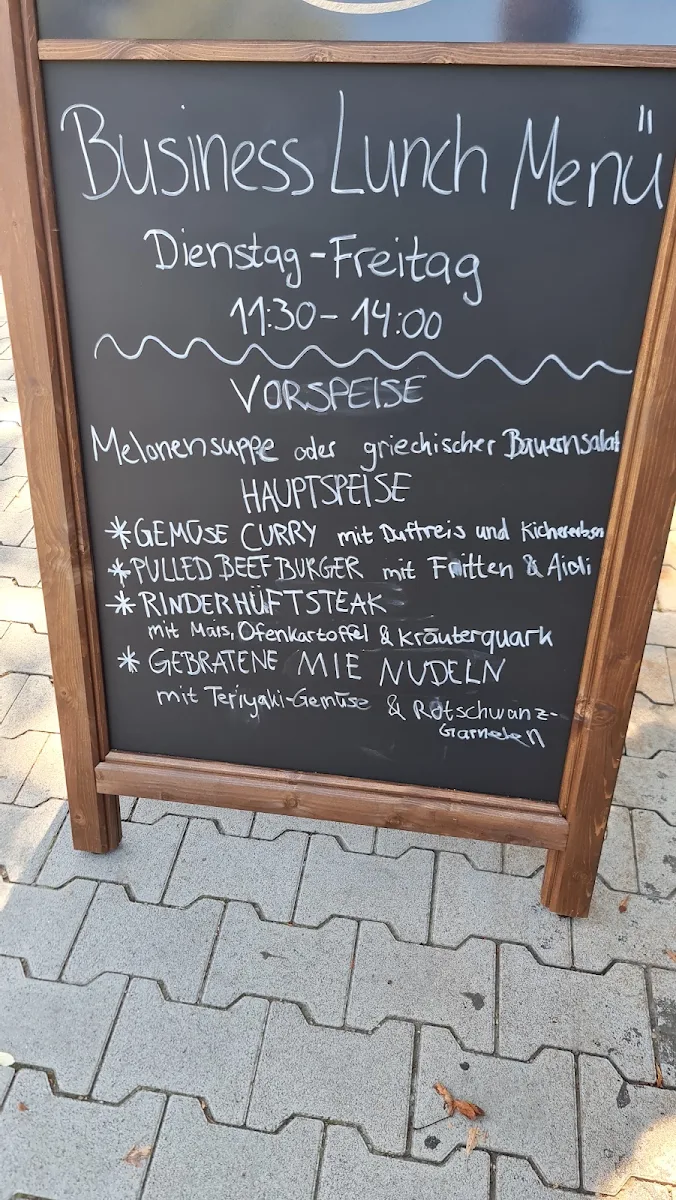 Business Lunch Menü
Dienstag-Freitag
11:30-14:00
VORSPEISE
Melonensuppe oder griechischer Bauernsalat
HAUPTSPEISE
*GEMÜSE CURRY mit Duftreis und Kichererbsn
*PULLED BEEF BURGER mit Fritten & Aioli
*RINDERHÜFTSTEAK
mit Mais, Ofenkartoffel & Kräuterquark
* GEBRATENE MIE NUDELN
mit Teriyaki-Gemüse & Rotschwanz-
Garnelen